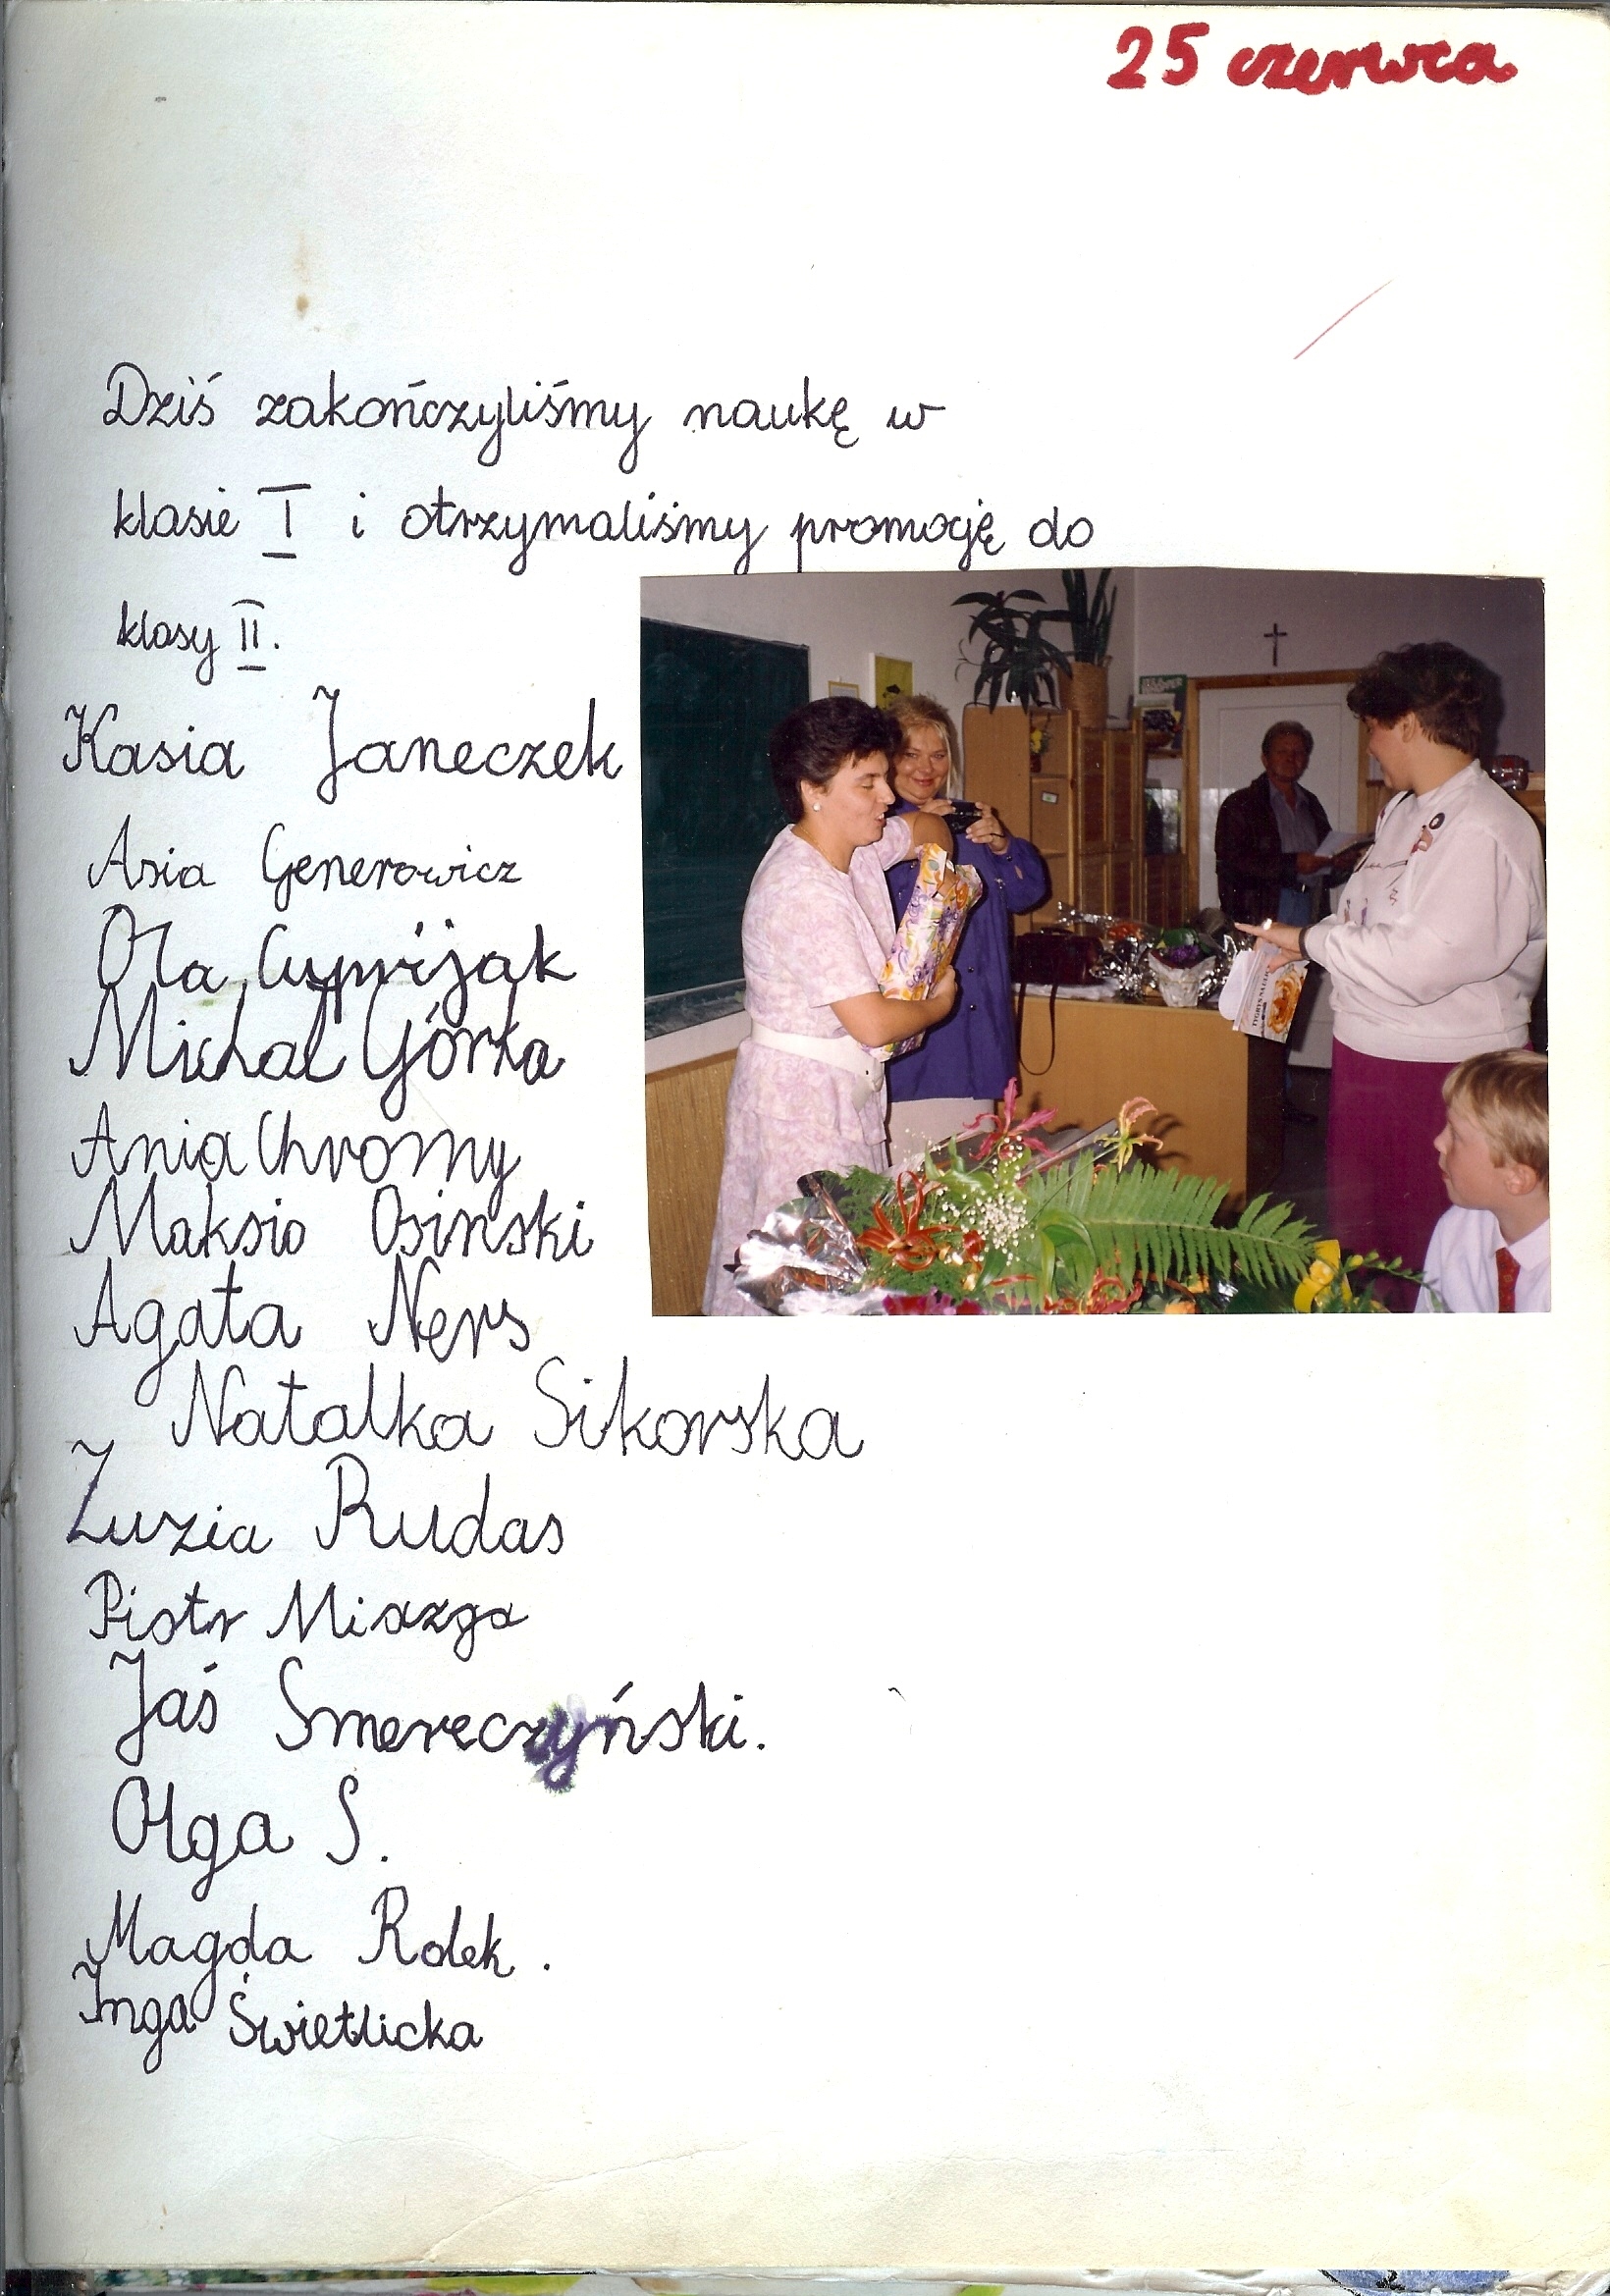 25 czerwca
Dziś zakończyliśmy naukę w
klasie I i otrzymaliśmy promocję do
klasy II.
Kasia Janeczek
Asia Generowicz
Ola Cuprijak
Michał Górka
Ania Chromy
Maksio Osinski
Agata Ners
Natalka Sikorska
Zuzia Rudas
Piotr Miazga
Jaś Smereczyński.
Olga S.
Magda Rolek.
Inga Świetlicka